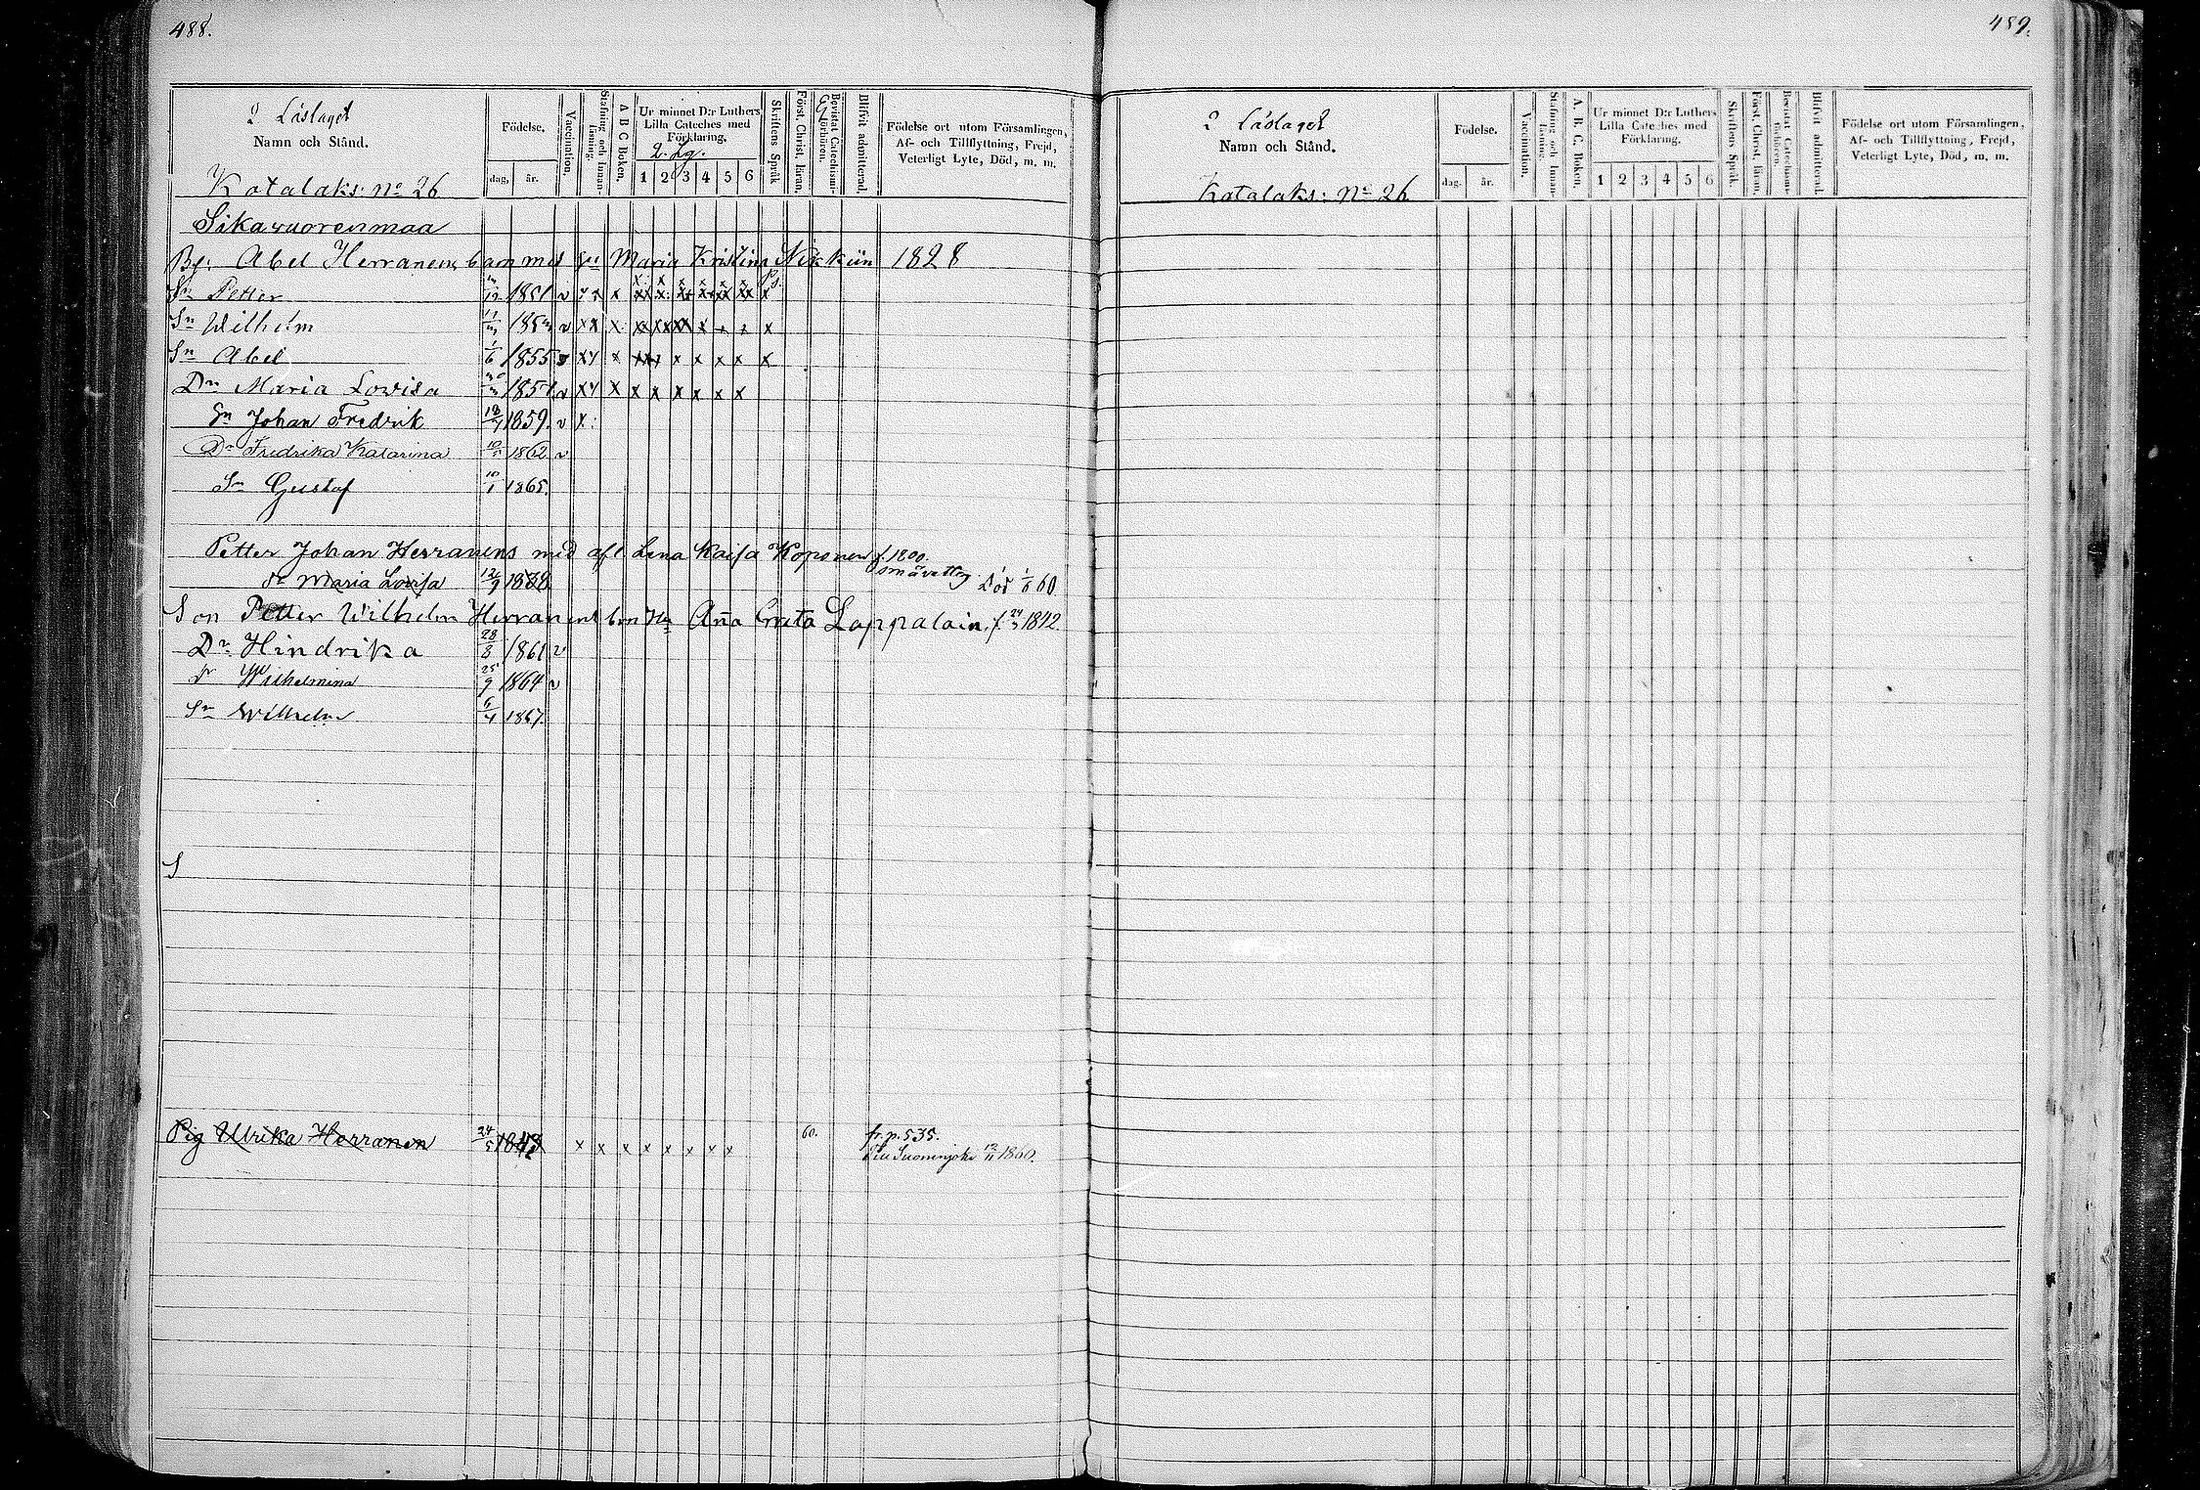 488.
2 Läslaget
Namn och Stånd.
Födelse.
dag,
år.
Vaccination.
Stafning och Innanläsning.
A B C Boken.
Ur minnet D:r Luthers
Lilla Cateches med
Förklaring.
2. Lg.
1 2 3 4 5 6
Skriftens Språk
Först, Christ, läran,
Bevistat Catechismiförhören.
Blifvit admitterad.
Födelse ort utom Församlingen,
Af- och Tillflyttning, Frejd,
Veterligt Lyte, Död, m. m.
Kotalaks: No 26
Sikavuorenmaa
Abel Herranens barn med Maria Kristina Nikkiin 1828
Sn Petter 1851 v x
Sn Wilhelm v x x x
Sn Abel 1/6 1855 x x x x x x
Dr Maria Lovisa v x x x x x x x x
Sn Johan Fredrik 1859. v x
Dr Fredrika Katarina 1862 v
Sn Gustaf 10/1 1865.
Petter Johan Herranens med afl Lena Kaisa Koponen f. 1800.
dr Maria Lovisa 12/9 1838 Död 60
Son Petter Wilhelm Herranens Anna Greta Lappalain f. 1842.
Dr Hindrika 28/8 1861 v
dr Wilhelmina 25/9 1864 v
Sn Wilhelm 6/4 1867.
S
Pig Ulrika Herranen 24/5 x x x x x x x x 60. fr. p. 535.
Till Suonenjoki 1860.
489.
2 Läslaget
Namn och Stånd.
Födelse.
dag.
år.
Vaccination.
Stafning och Innanläsning.
A. B. C. Boken.
Ur minnet D:r Luthers
Lilla Cateches med
Förklaring.
1 2 3 4 5 6
Skriftens Språk.
Först, Christ, läran.
Bevistat Catechismiförhören.
Blifvit admitterad.
Födelse ort utom Församlingen,
Af- och Tillflyttning, Frejd,
Veterligt Lyte, Död, m. m.
Kotalaks: No 26